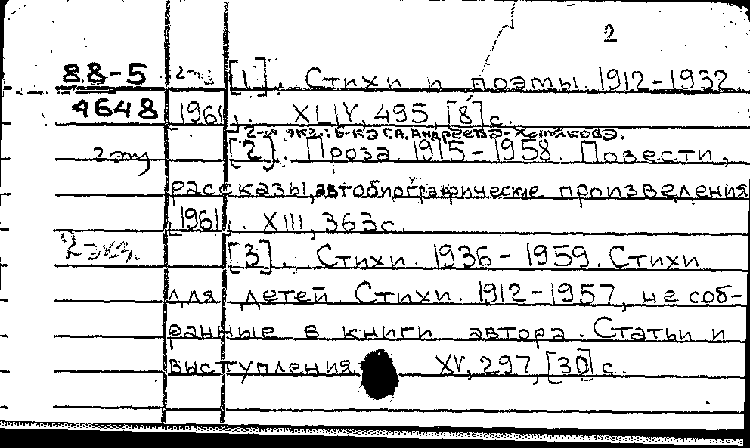 2
88-5 2 эк. [1]. Стихи и поэмы. 1912-1932
4648 1961. XLIV, 495, [8] с.
2-й экз.: Б-ка С.А. Андреева-Хомякова.
2 экз [2]. Проза 1915-1958. Повести,
рассказы, автобиографические произведения
1961. XIII, 363 с.
2 экз. [3]. Стихи. 1936-1959. Стихи
для детей. Стихи. 1912-1957, не соб-
ранные в книги автора. Статьи и
выступления XV, 297, [30] с.